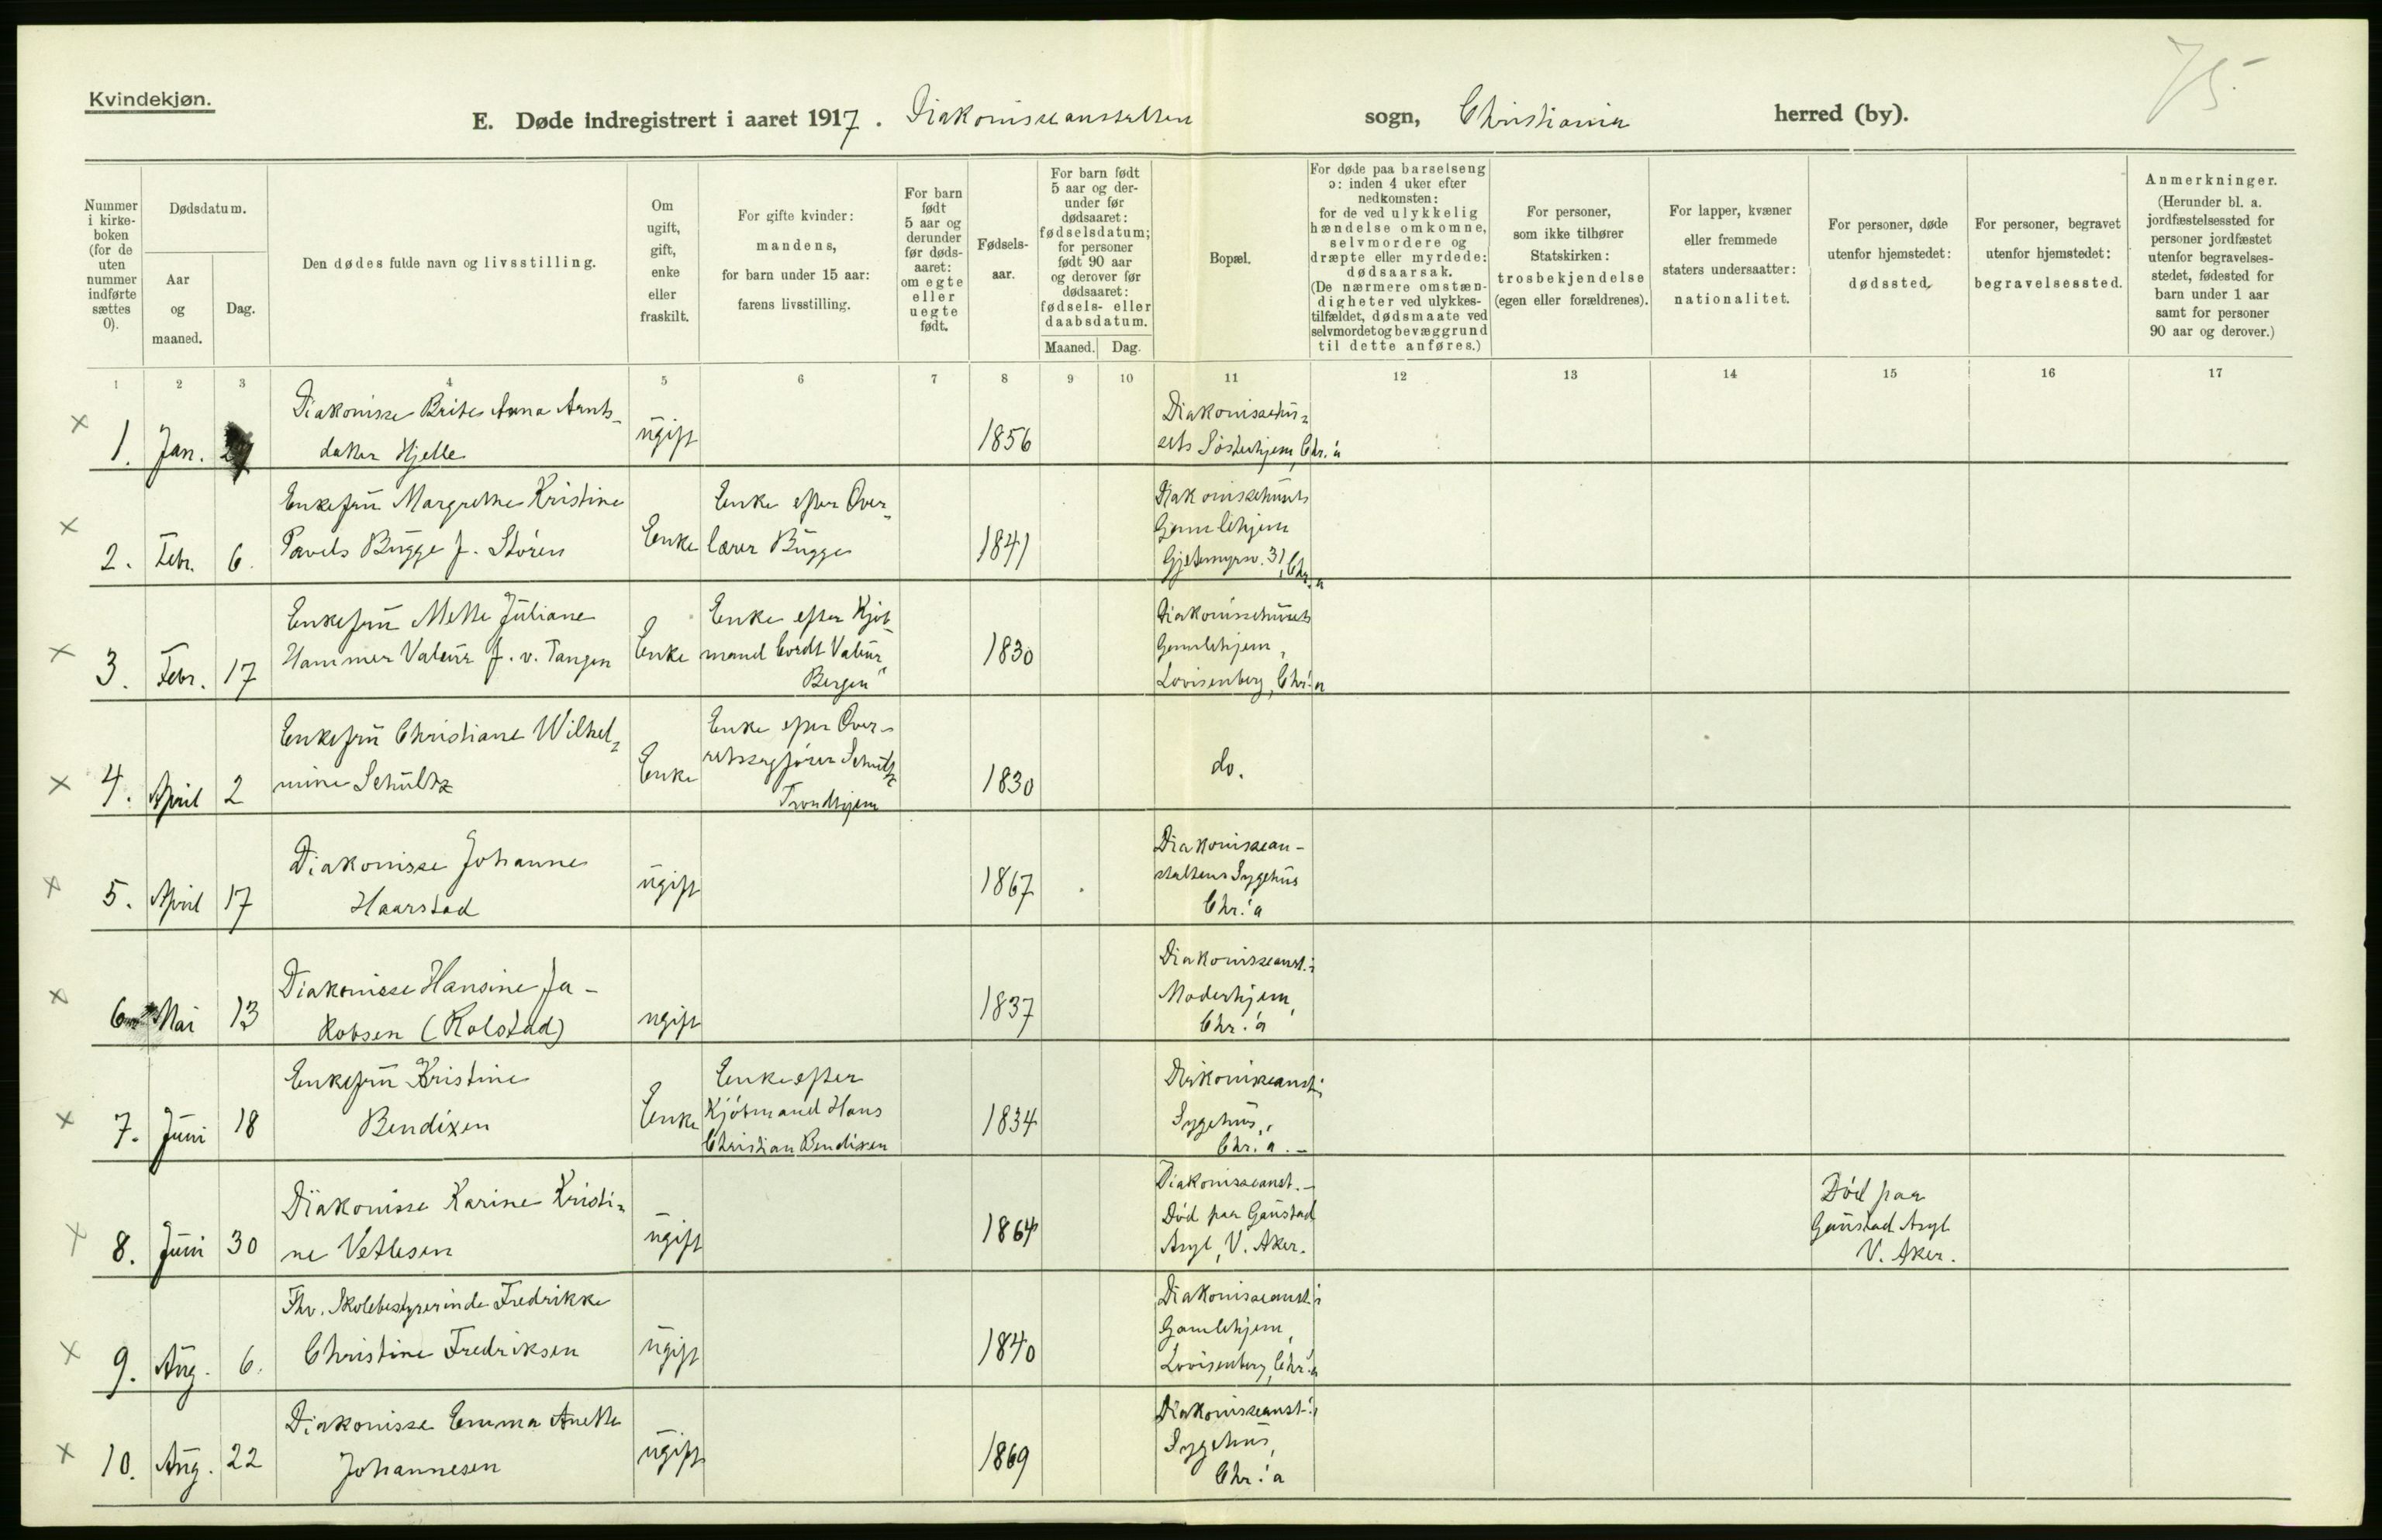 75.
Kvindekjøn.
E. Døde indregistrert i aaret 1917. Diakonisseanstalten sogn, Christiania herred (by).
Nummer
i kirke-
boken
(for de
uten
nummer
indførte
sættes
0).
Dødsdatum.
Aar
og
maaned.
Dag.
Den dødes fulde navn og livsstilling.
Om
ugift,
gift,
enke
eller
fraskilt.
For gifte kvinder:
mandens,
for barn under 15 aar:
farens livsstilling.
For barn
født
5 aar og
derunder
før døds-
aaret:
om egte
eller
uegte
født.
Fødsels-
aar.
For barn født
5 aar og der-
under før
dødsaaret:
fødselsdatum;
for personer
født 90 aar
og derover før
dødsaaret:
fødsels- eller
daabsdatum.
Maaned. Dag.
Bopæl.
For døde paa barselseng
ɔ: inden 4 uker efter
nedkomsten:
for de ved ulykkelig
hændelse omkomne,
selvmordere og
dræpte eller myrdede:
dødsaarsak.
(De nærmere omstæn-
digheter ved ulykkes-
tilfældet, dødsmaate ved
selvmordet og bevæggrund
til dette anføres.)
For personer,
som ikke tilhører
Statskirken:
trosbekjendelse
(egen eller forældrenes).
For lapper, kvæner
eller fremmede
staters undersaatter:
nationalitet.
For personer, døde
utenfor hjemstedet:
dødssted.
For personer, begravet
utenfor hjemstedet:
begravelsessted.
Anmerkninger.
(Herunder bl. a.
jordfæstelsessted for
personer jordfæstet
utenfor begravelses-
stedet, fødested for
barn under 1 aar
samt for personer
90 aar og derover.)
1 2 3 4 5 6 7 8 9 10 11 12 13 14 15 16 17
x 1. Jan.
Diakonisse Brite Anna Arnts-
datter Hjelle
ugift
1856
Diakonissehu-
sets Søsterhjem, Chr.'a
x 2. Febr. 6.
Enkefru Margrethe Kristine
Pavels Bugge f. Støren
Enke
Enke efter Over-
lærer Bugge
1841
Diakonissehusets
Gamlehjem
Gjetemyrsv. 31, Chr.'a
x 3. Febr. 17
Enkefru Mette Juliane
Hammer Valeur f. v. Tangen
Enke
Enke efter Kjøb-
mand Cordt Valeur,
Bergen
1830
Diakonissehusets
Gamlehjem,
Lovisenberg, Chr.'a
x 4. April 2
Enkefru Christiane Wilhel-
mine Schultz
Enke
Enke efter Over-
retssagfører Schultz
Trondhjem
1830
do.
x 5. April 17
Diakonisse Johanne
Haarstad
ugift
1867
Diakonissean-
staltens Sygehus
Chr.'a
x 6. Mai 13
Diakonisse Hansine Ja-
kobsen (Kolstad)
ugift
1837
Diakonisseanst.'s
Moderhjem,
Chr.'a
x 7. Juni 18
Enkefru Kristine
Bendixen
Enke
Enke efter
Kjøbmand Hans
Christian Bendixen
1834
Diakonisseanst.'s
Sygehus,
Chr.'a.-
x 8. Juni 30
Diakonisse Karine Kristi-
ne Vetlesen
ugift
1864
Diakonisseanst.-
Død paa Gaustad
Asyl, V. Aker.
Død paa
Gaustad Asyl
V. Aker.
x 9. Aug. 6.
Fhv. Skolebestyrerinde Fredrikke
Christine Fredriksen
ugift
1840
Diakonisseanst.'s
Gamlehjem,
Lovisenberg, Chr.'a
x 10. Aug. 22
Diakonisse Emma Anette
Johannesen
ugift
1869
Diakonisseanst.'s
Sygehus,
Chr.'a